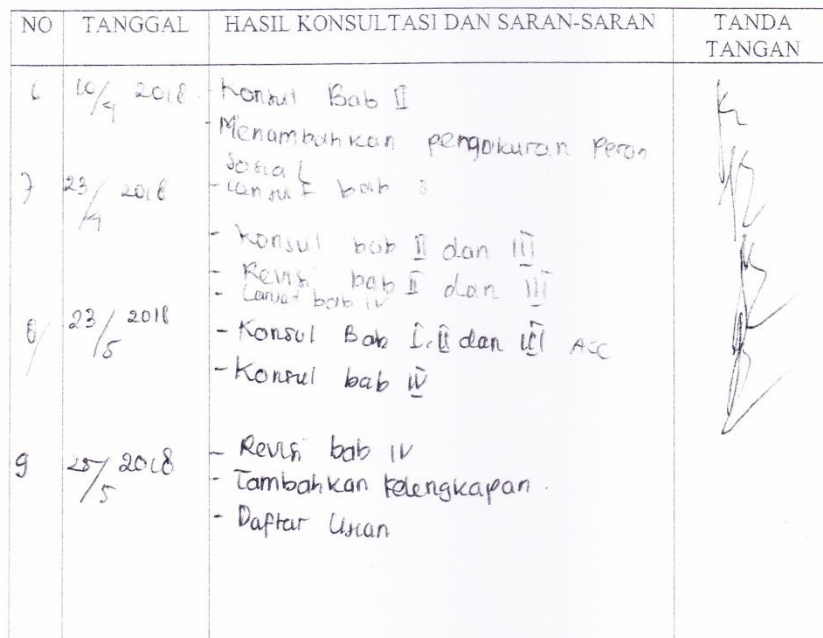 NO TANGGAL HASIL KONSULTASI DAN SARAN-SARAN TANDA TANGAN
6 10/4 2018 - Konsul Bab II
- Menambahkan pengukuran Peran
Sosial
7 23/4 2018 - Lanjut bab 3
- Konsul bab II dan III
- Revisi bab II dan III
- Lanjut bab IV
8 23/5 2018 - Konsul Bab I, II dan III ACC
- Konsul bab IV
9 25/5 2018 - Revisi bab IV
- Tambahkan kelengkapan.
- Daftar Ujian